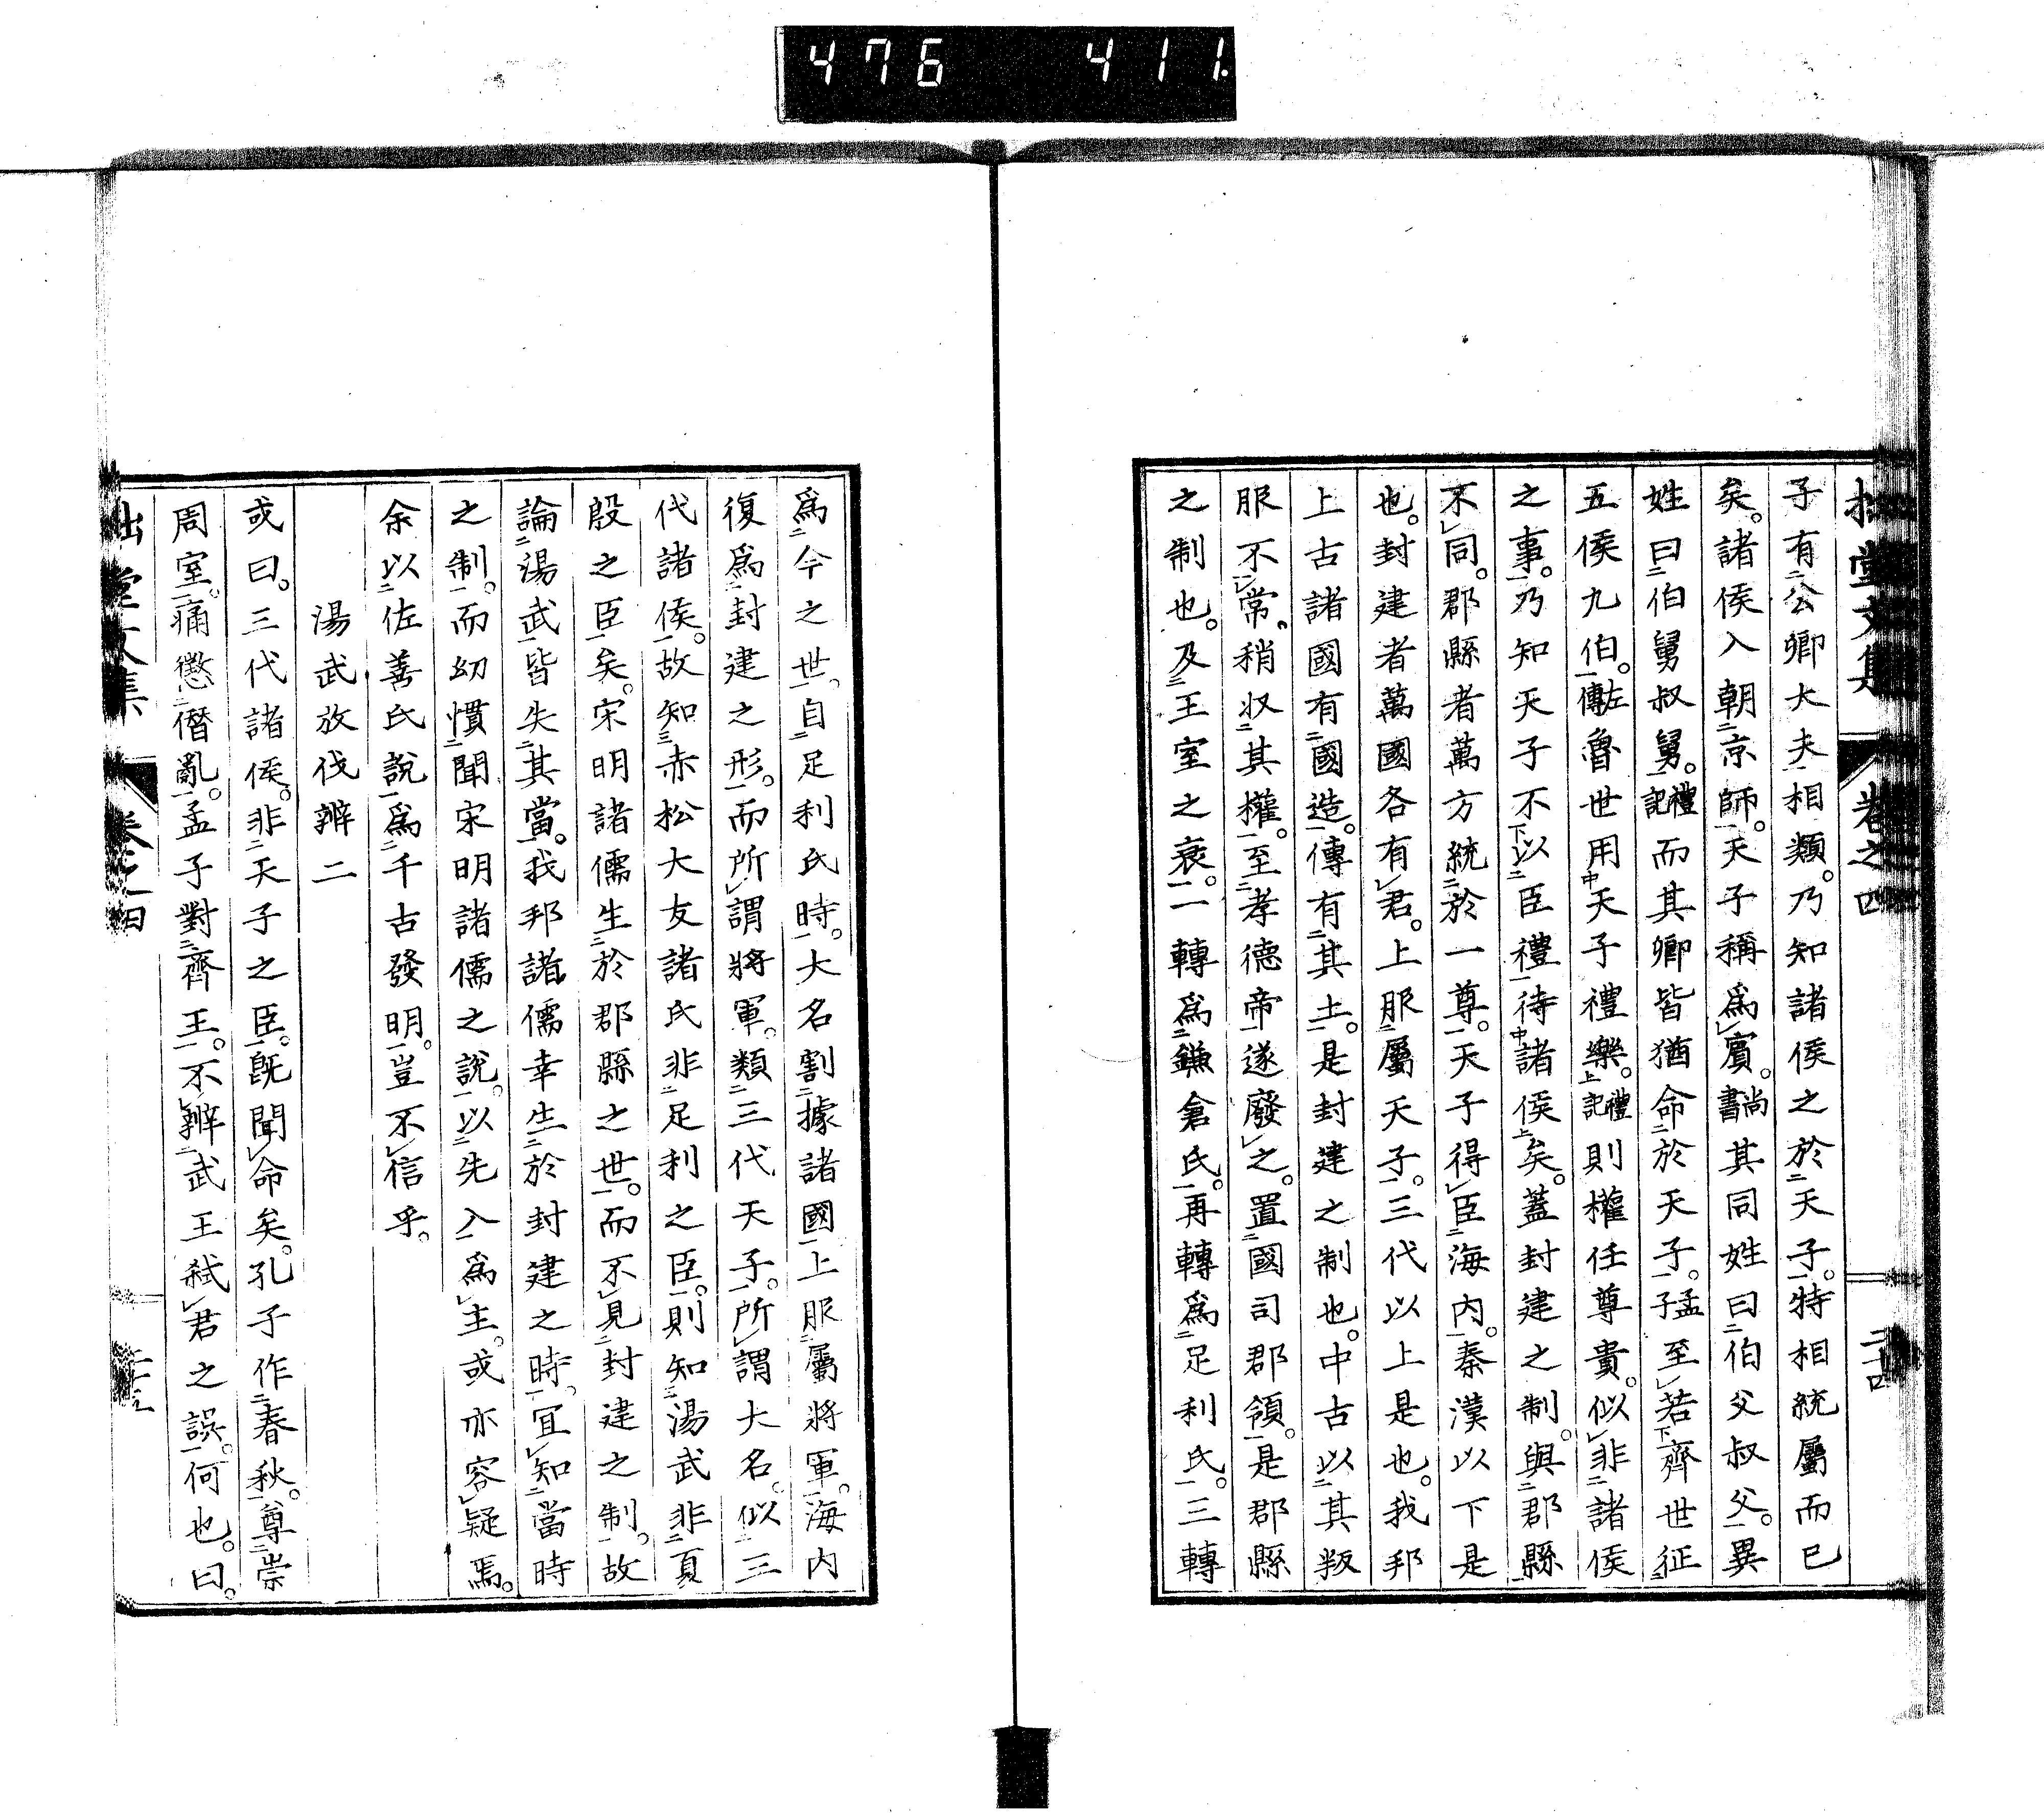 476 411.
拙堂文集 卷之四 二十四
子有公卿大夫相類。乃知諸侯之於天子。特相統屬而已
矣。諸侯入朝京師。天子稱爲賓。尚書其同姓曰伯父叔父。異
姓曰伯舅叔舅。禮記而其卿皆猶命於天子。孟子至若齊世征
五侯九伯。左傳魯世用天子禮樂。禮記則權任尊貴。似非諸侯
之事。乃知天子不以臣禮待諸侯矣。蓋封建之制。與郡縣
不同。郡縣者萬方統於一尊。天子得臣海內。秦漢以下是
也。封建者萬國各有君。上服屬天子。三代以上是也。我邦
上古諸國有國造。傳有其土。是封建之制也。中古以其叛
服不常。稍収其權。至孝德帝遂廢之。置國司郡領。是郡縣
之制也。及王室之衰。一轉爲鎌倉氏。再轉爲足利氏。三轉
爲今之世。自足利氏時。大名割據諸國上服屬將軍。海内
復爲封建之形。而所謂將軍。類三代天子。所謂大名。似三
代諸侯。故知赤松大友諸氏非足利之臣。則知湯武非夏
殷之臣矣。宋明諸儒生於郡縣之世。而不見封建之制。故
論湯武皆失其當。我邦諸儒幸生於封建之時。宜知當時
之制。而幼慣聞宋明諸儒之說。以先入爲主。或亦容疑焉。
余以佐善氏說爲千古發明。豈不信乎。
湯武放伐辨二
或曰。三代諸侯。非天子之臣。旣聞命矣。孔子作春秋。尊崇
周室。痛懲僭亂。孟子對齊王。不辨武王弑君之誤。何也。曰。
拙堂文集 卷之四 二十五